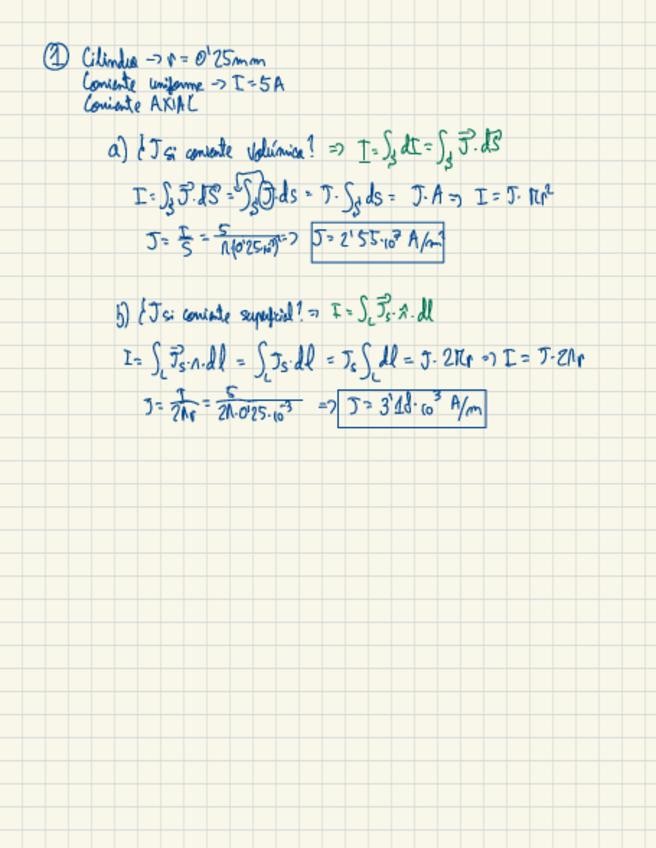 1 Cilindro → r = 0'25mm
Corriente uniforme → I = 5A
Corriente AXIAL
a) ¿J si corriente volúmica? ⇒ I = ∫_S dI = ∫_S J⃗·dS⃗
I = ∫_S J⃗·dS⃗ = ∫_S J·ds = J·∫_S ds = J·A ⇒ I = J·πr²
J = I/S = 5/π(0'25·10⁻³)² ⇒ J = 2'55·10⁷ A/m²
b) ¿J si corriente superficial? ⇒ I = ∫_L J⃗s·n̂·dl
I = ∫_L J⃗s·n·dl = ∫_L Js·dl = Js ∫_L dl = J·2πr ⇒ I = J·2πr
J = I/2πr = 5/2π·0'25·10⁻³ ⇒ J = 3'18·10³ A/m